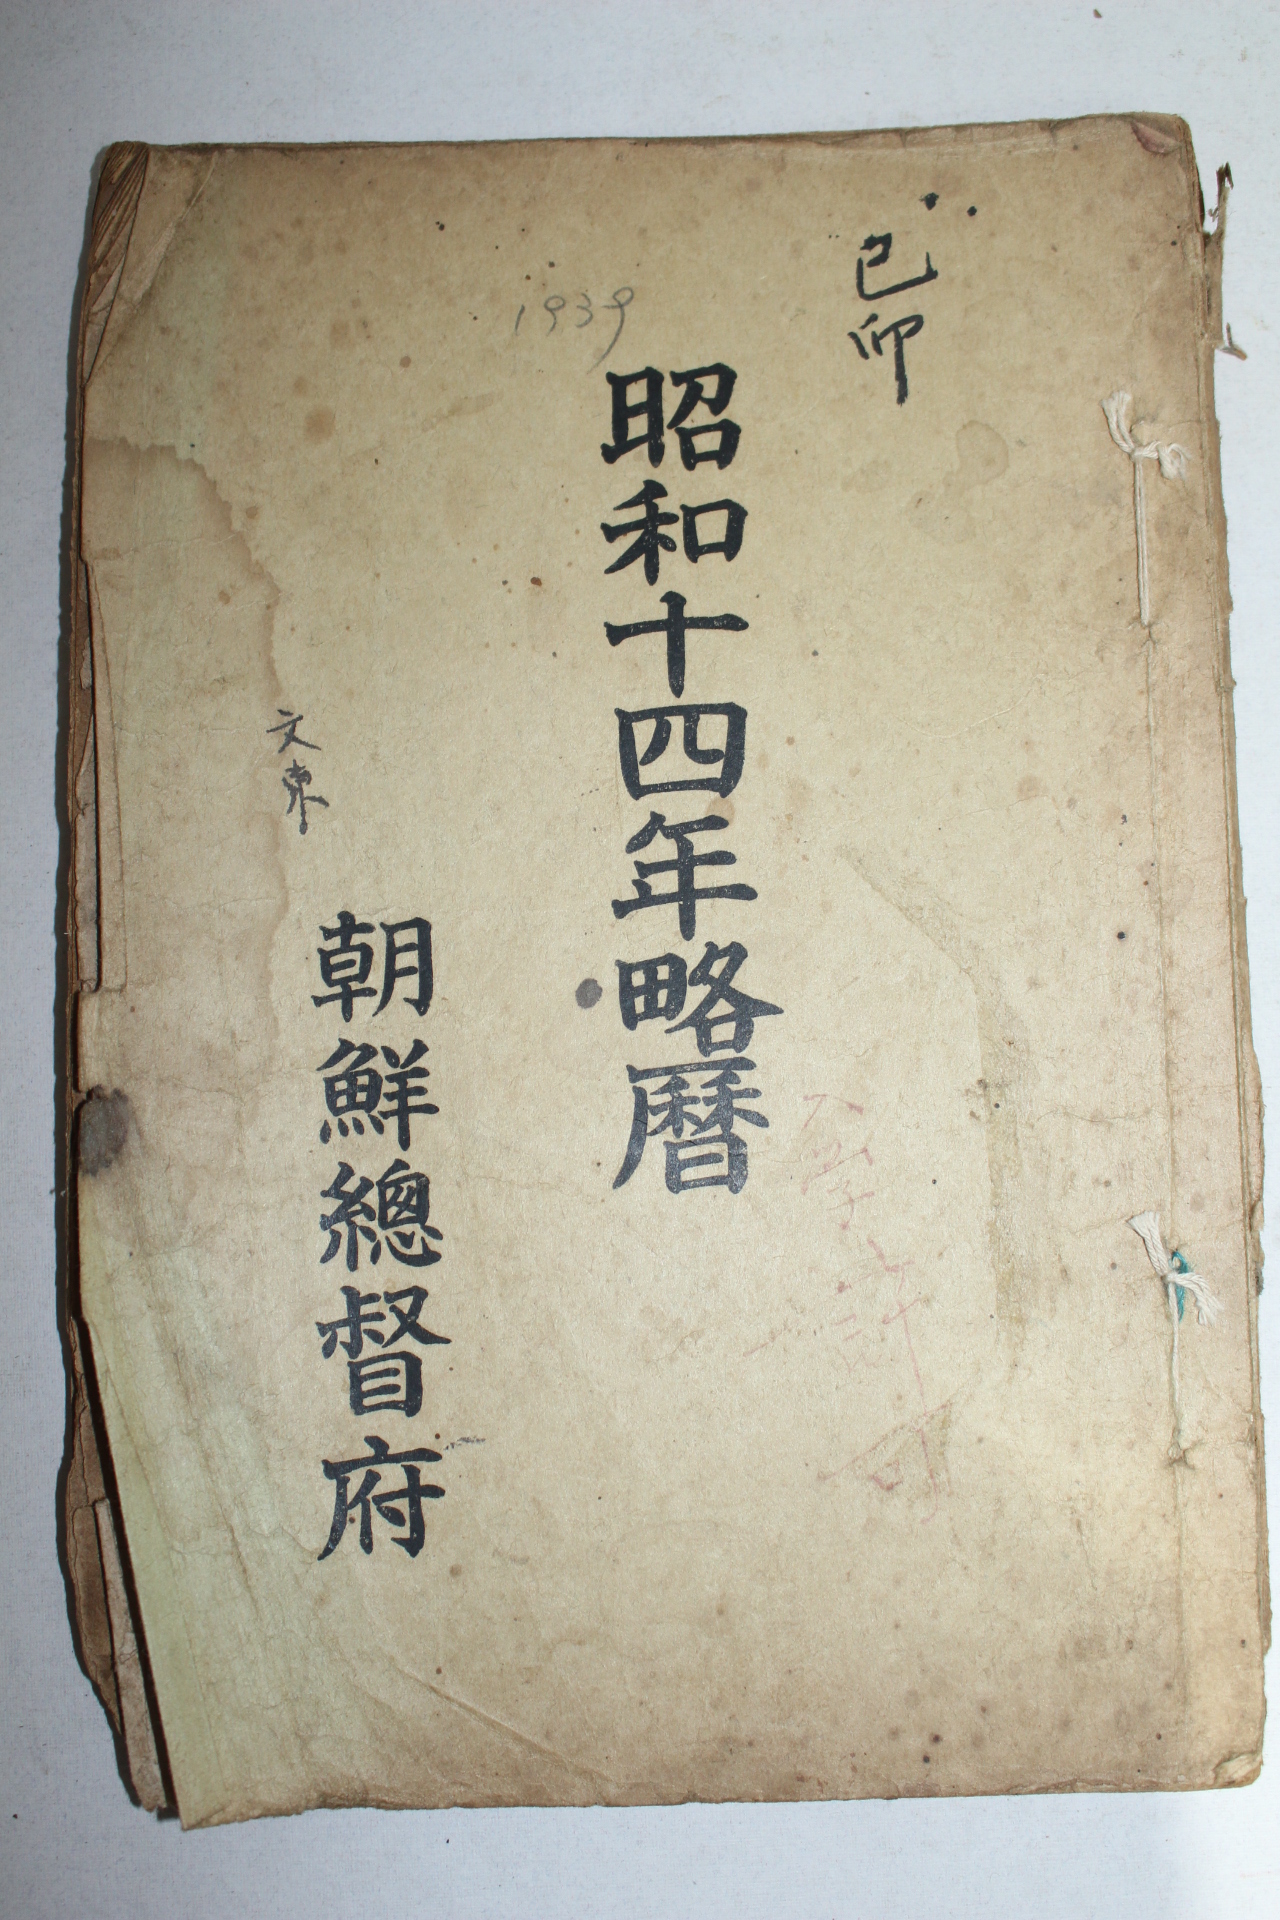 己卯
1939
昭和十四年略曆
文東
朝鮮總督府